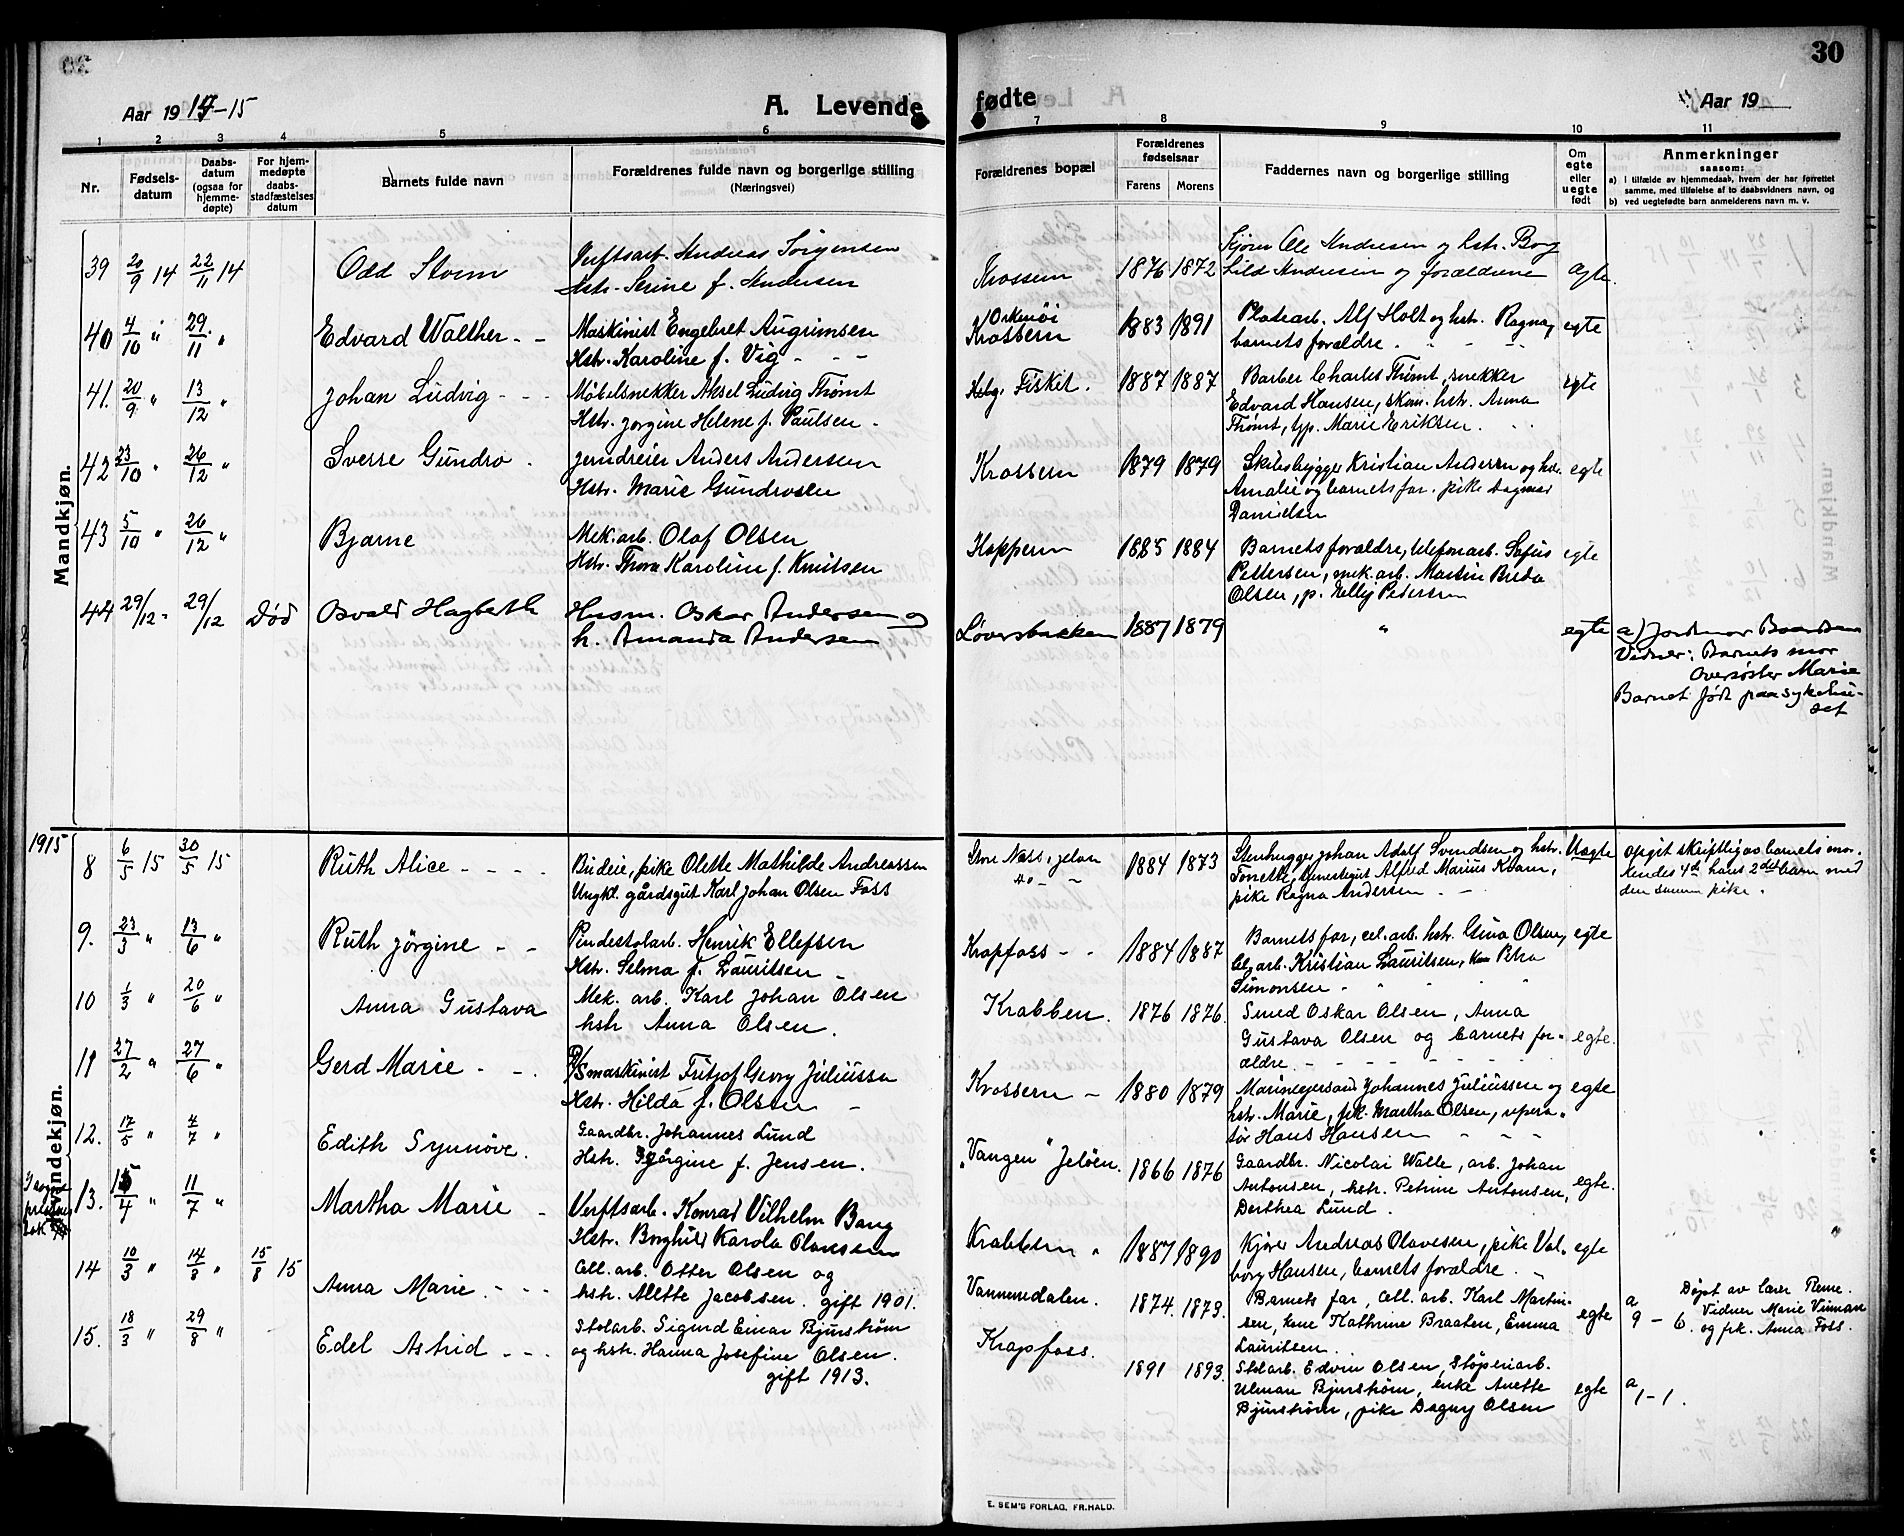 30
Aar 1914-15
A. Levende fødte
Aar 19
1 2 3 4 5 6 7 8 9 10 11
Nr.
Fødsels-
datum
Daabs-
datum
(ogsaa for
hjemme-
døpte)
For hjem-
medøpte
daabs-
stadfæstelses
datum
Barnets fulde navn
Forældrenes fulde navn og borgerlige stilling
(Næringsvei)
Forældrenes bopæl
Forældrenes
fødselsaar
Farens Morens
Faddernes navn og borgerlige stilling
Om
egte
eller
uegte
født
Anmerkninger
saasom:
a) i tilfælde av hjemmedaab, hvem der har forrettet
samme, med tilføielse af to daabsvidners navn, og
b) ved uegtefødte barn anmelderens navn m. v.
Mandkjøn.
39 20/9 14 22/11 14 Odd Storm
Verftsarb. Andreas Jörgensen
Hstr. Serine f. Andersen
Krossern 1876 1872
Kjører Ole Andresen og hstr. Borg
hild Andersen og forældrene
egte.
40 4/10 " 29/11 " Edvard Walther - -
Maskinist Engebret Augrimsen
Hstr. Karoline f. Vig - - -
Orkenöi
Krossern 1883 1891
Platearb. Alf Holt og hstr. Ragna,
barnets forældre.
egte
41. 20/9 " 13/12 " Johan Ludvig - - -
Møbelsnekker Aksel Ludvig Thømt
Hstr. Jorgine Helene f. Paulsen.
Fisket. 1887 1887
Barber Charles Thømt, snekker
Edvard Hansen, skom. hstr. Anna
Thømt, tjp. Marie Eriksen.
egte
42 23/10 " 26/12 " Sverre Gundro.
Jerndreier Anders Andersen
Hstr. Marie Gundrosen
Krossern 1879 1879
Skibsbygger Kristian Andersen og hstr.
Amalie og barnets far. pike Dagmar
Danielsen
egte
43 5/10 " 26/12 " Bjarne
Mek. arb. Olaf Olsen
Hstr. Thora Karoline f. Knutsen
Koppern 1885 1884
Barnets forældre, telefonarb. Sofus
Pettersen, mek. arb. Martin Breda
Olsen, p. Elly Pedersen
egte
44 29/12 - 29/12 Død Osvald Hagbarth
Husm. Oskar Andersen og
h. Amanda Andersen
Løversbakken 1887 1879 " egte
a) Jordmor Baardsen
Vidner: Barnets mor
Oversøster Marie
Barnet født paa sykehu-
set
1915
Kvindekjøn.
8 6/5 15 30/5 15 Ruth Alice - - - -
Budeie, pike Olette Mathilde Andreassen
Ungkl. gårdsgut Karl Johan Olsen Foss
Store Næss, Jeløn
do - - 1884 1873
Stenhugger Johan Adolf Svendsen og hstr.
Tonette, tjenestegut Alfred Marius Kvam,
pike Ragna Andersen - -
Uegte
Opgit skriftlig av barnets mor.
hendes 4de hans 2det barn med
den samme pike.
9. 23/3 " 13/6 " Ruth Jörgine - -
Pindestolarb. Henrik Ellefsen
Hstr. Selma f. Lauritsen -
Krapfoss - - 1884 1887
Barnets far, cel. arb. hstr. Gina Olsen,
Cel. arb. Kristian Lauritsen, Petra
Simonsen - " " " "
egte
10 1/3 " 20/6 " Anna Gustava
Mek. arb. Karl Johan Olsen
hstr Anna Olsen.
Krabben. 1876 1876.
Smed Oskar Olsen, Anna
Gustava Olsen og barnets for-
ældre. - - - - - -
egte.
11 27/2 " 27/6 " Gerd Marie - -.
D/Smaskinist Fritjof Georg Juliussen
Hstr. Hilda f. Olsen -
Krossern - 1880 1879
Marineqersand Johannes Juliussen og
hstr. Marie, pk. Martha Olsen, repera-
tør Hans Hansen - - -
egte
12. 17/5 " 4/7 " Edith Synnöve.
Gaardbr. Johannes Lund
Hstr. Jørgine f. Jensen.
"Vangen" Jelöen. 1866 1876
Gaardbr. Nicolai Walle, arb. Johan
Antonsen, hstr. Petrine Antonsen,
Dorthea Lund.
egte.
13. 15/4 " 11/7 " Martha Marie -
Verftsarb. Konrad Vilhelm Bang
Hstr. Borghild Karola Olavesen
Krabbern " 1887 1890
Kjører Andreas Olavesen, pike Val-
borg Hansen, barnets forældre.
egte
14 10/3 " 14/8 " 15/8 15 Anna Marie. - - -
Cell. arb. Otter Olsen og
hstr. Alette Jacobsen. gift 1901.
Vannemdalen. 1874. 1873.
Barnets far, Cell. arb. Karl Martin-
sen, kone Kathrine Braaten, Emma
Lauritsen.
egte
a
9 - 6.
Døpt av lærer Reme.
Vidner Marie Vinnan
og frk. Anna Foss.
15. 18/3 " 29/8 " Edel Astrid - - -
Stolarb. Sigurd Einar Bjurstrøm
og hstr. Hanna Josefine Olsen.
gift 1913.
Krapfoss. 1891 1893.
Stolarb. Edvin Olsen, Støperiarb.
Ulman Bjurstrøm, enke Anette
Bjurstrøm, pike Dagny Olsen
egte
a
1 - 1.
E. SEM'S FORLAG, FR.HALD.